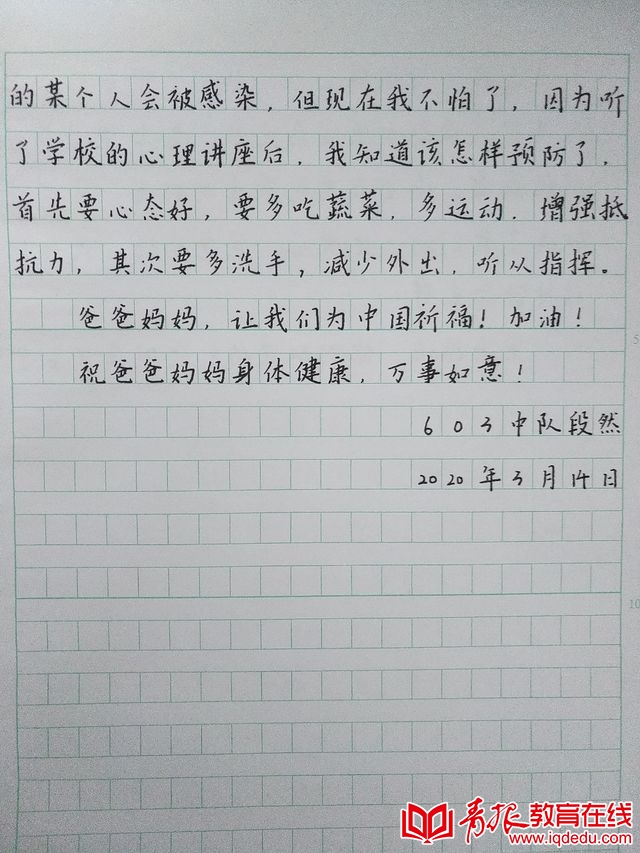 的某个人会被感染，但现在我不怕了，因为听
了学校的心理讲座后，我知道该怎样预防了，
首先要心态好，要多吃蔬菜，多运动，增强抵
抗力，其次要多洗手，减少外出，听从指挥。
爸爸妈妈，让我们为中国祈福！加油！
5
祝爸爸妈妈身体健康，万事如意！
603中队段然
2020年3月14日
10
青报教育在线
www.iqdedu.com